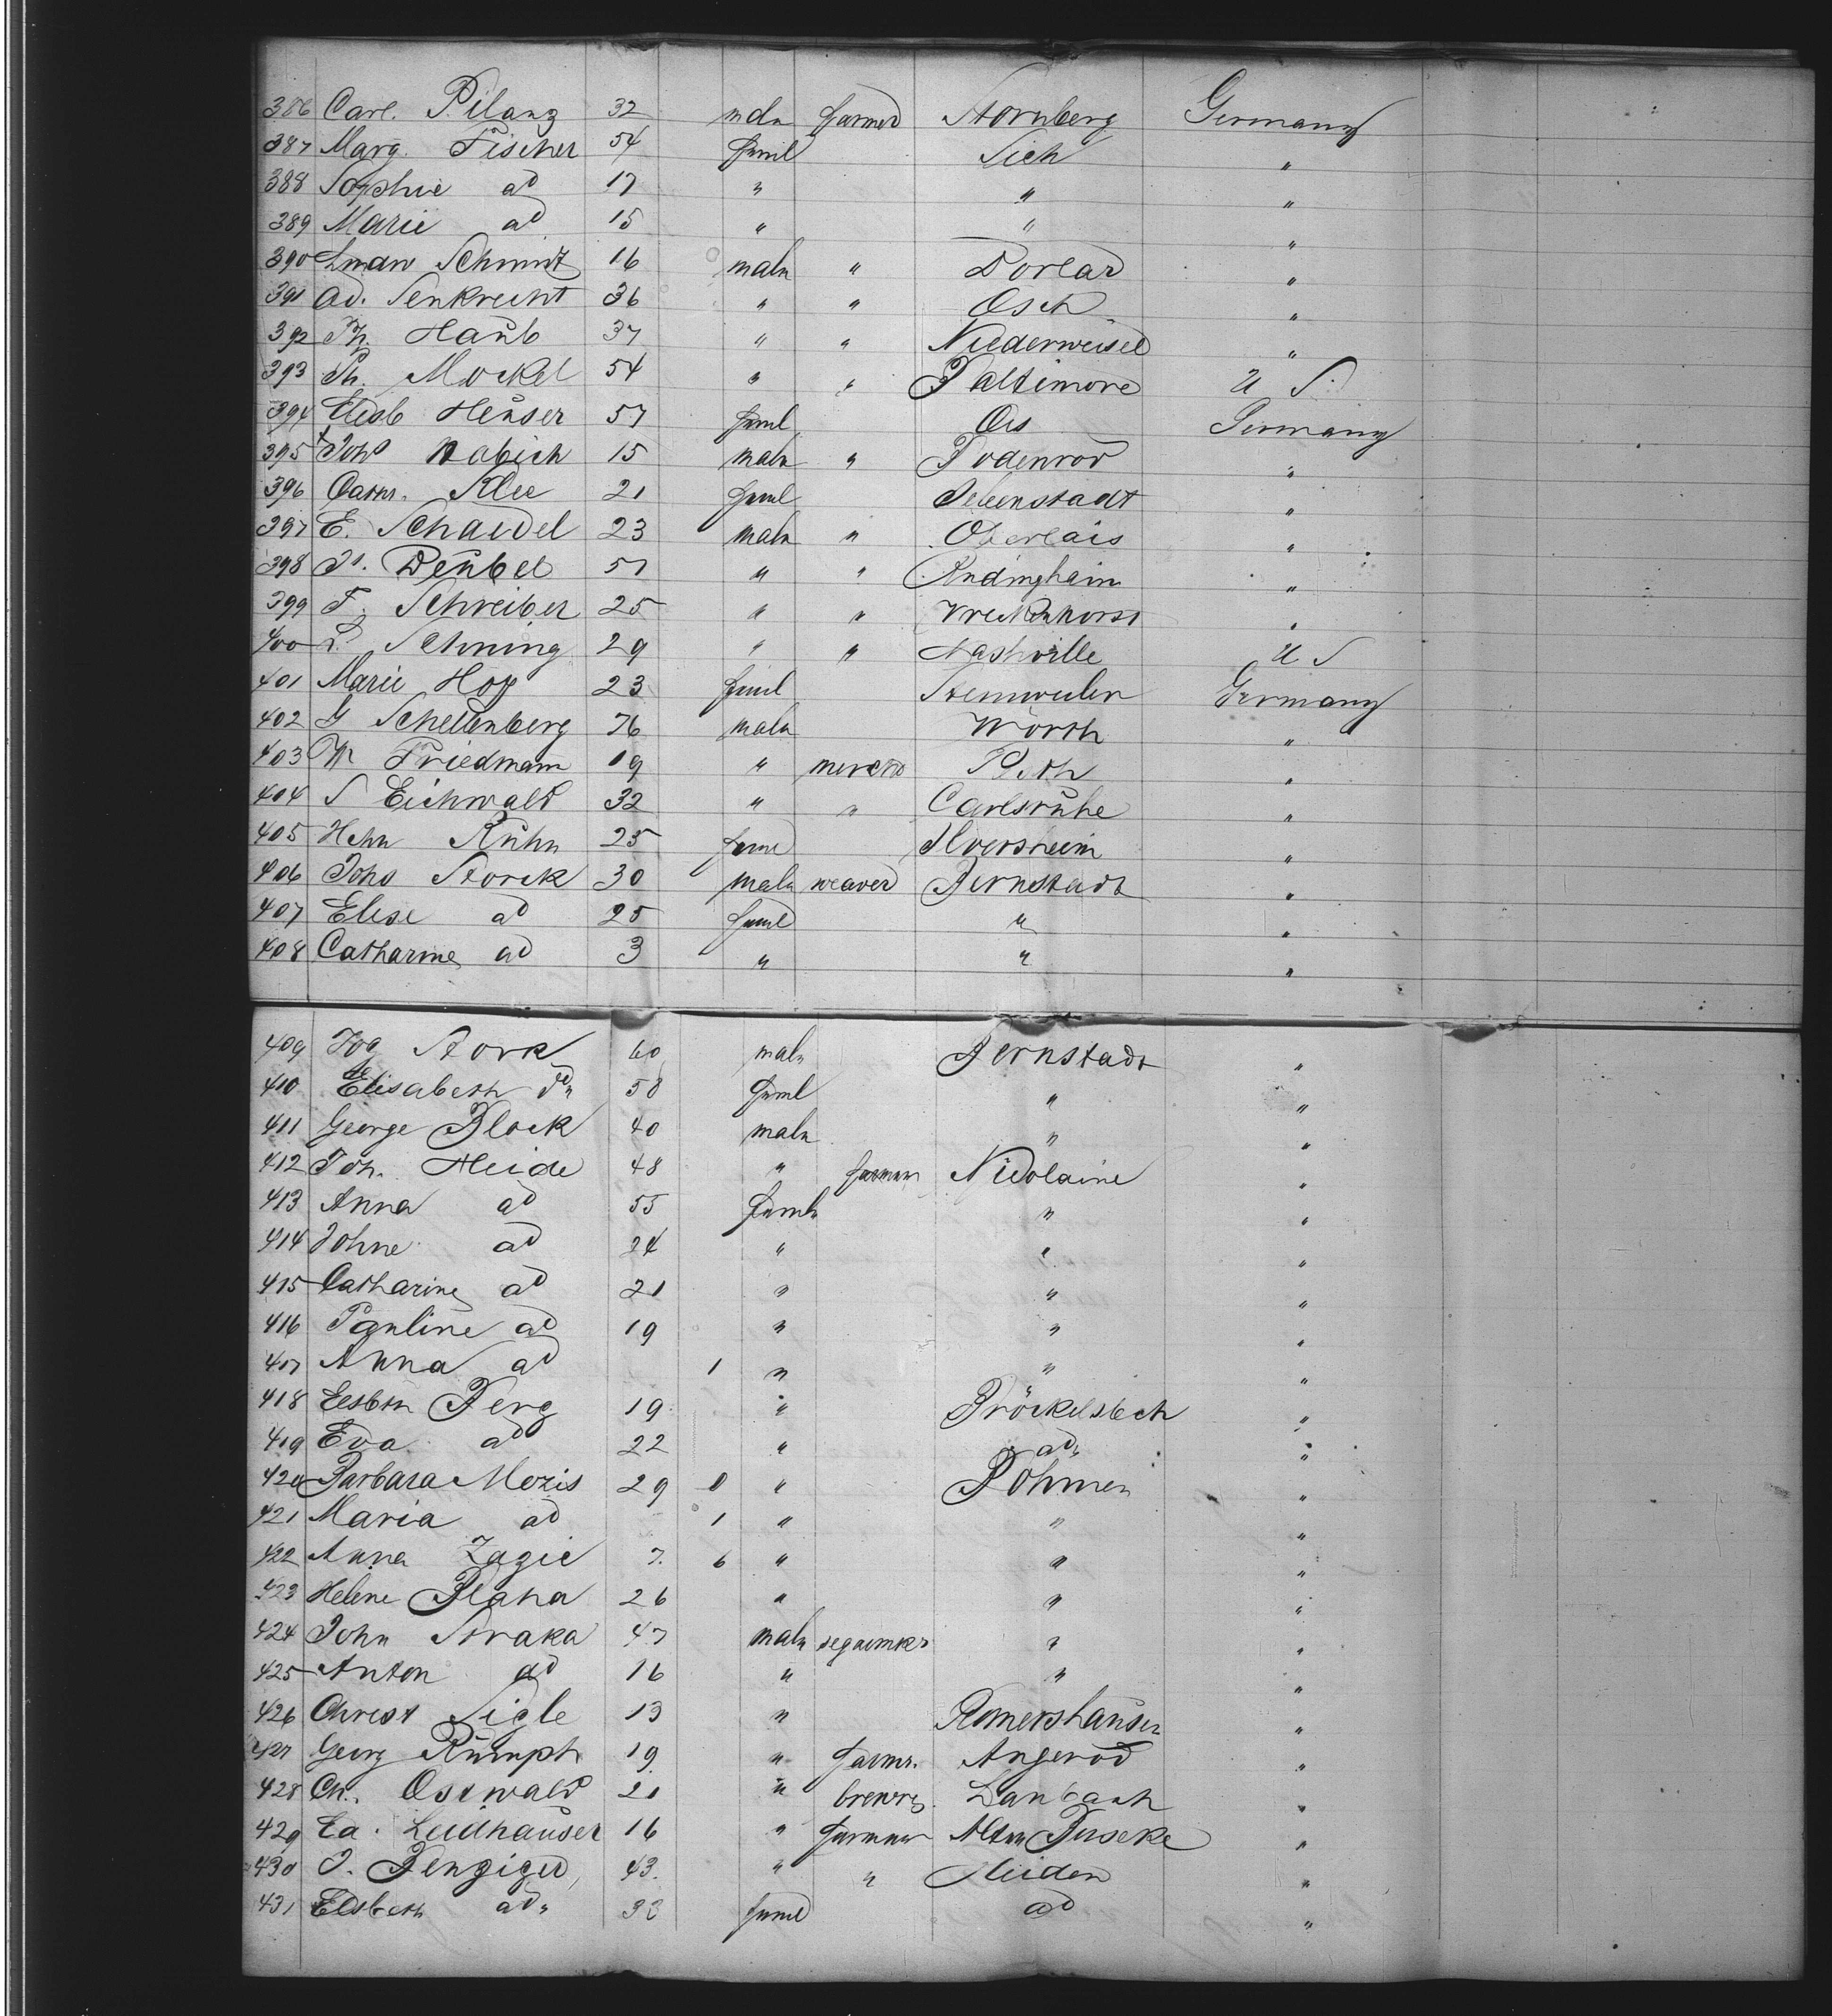 386 Carl. Pilanz 32 male farmer Stornberg Germany
387 Marg. Fischer 54 feml Lich "
388 Sophie ad 17 " " "
389 Marie ad 15 " " "
390 Schmidt 16 male " Dorlar "
391 Ad. Senkrecht 36 " " Osch "
392 Ph. Haüb 37 " " Niederweisel "
393 Ph. Mockel 54 " " Baltimore U S.
394 Elisb Heüser 57 feml Ois Germany
395 Joh Habich 15 male " Bodenrod "
396 Cathr. Klee 21 feml "
397 E. Schaedel 23 male " Oberlais "
398 Deübel 51 " " "
399 F. Schreiber 25 " " "
400 L. Schning 29 " " Nashville U S
401 Marie Hoy 23 feml Steinweiler Germany
402 G Schellenberg 76 male Wörth "
403 M Friedmann 19 " merch "
404 S Eichwald 32 " " Carlsrühe "
405 Hehn Kühn 25 feml Ilversheim "
406 Johs Storck 30 male weaver Bernstadt "
407 Elise ad 25 feml " "
408 Catharine ad 3 " " "
409 Stork 60 male Bernstadt "
410 Elisabeth do 58 feml " "
411 George Block 40 male " "
412 Joh. Heide 48 " farmer "
413 Anna ad 55 female " "
414 Johne ad 24 " " "
415 Catharine ad 21 " " "
416 Pauline ad 19 " " "
417 Anna ad 1 " " "
418 Elsbth Berg 19 " Bröckelsbch "
419 Eva ad 22 " ad. "
420 Barbara Mozis 29 0 " Böhmen "
421 Maria ad 1 " " "
422 Anna Zagic 7. 6 " " "
423 Helene Blaha 26 " " "
424 John Straka 47 male segarmkr " "
425 Anton ad 16 " " "
426 Christ Sigle 13 " Romershaüsen "
427 Georg Rümpf 19. " farmr. Angerod "
428 Ch. Ostwald 21 " brewer Laubach "
429 Ed. Leidhaüser 16 " farmer Alten Buseke "
430 J. Benziger 43. " " Heiden "
431 Elsbeth ad. 33 feml ad "